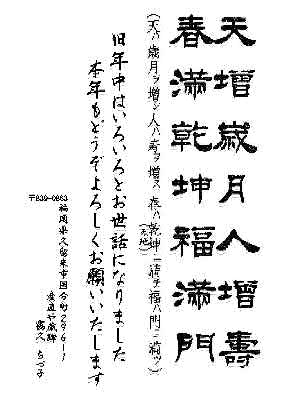 天增歳月人增壽
春満乾坤福満門
(天ハ歳月ヲ増シ人ハ寿ヲ増ス 春ハ乾坤ニ満チ福ハ門ニ満ツ)
(天地)
旧年中はいろいろとお世話になりました
本年もどうぞよろしくお願いいたします
〒839-0863
福岡県久留米市国分町2961-1